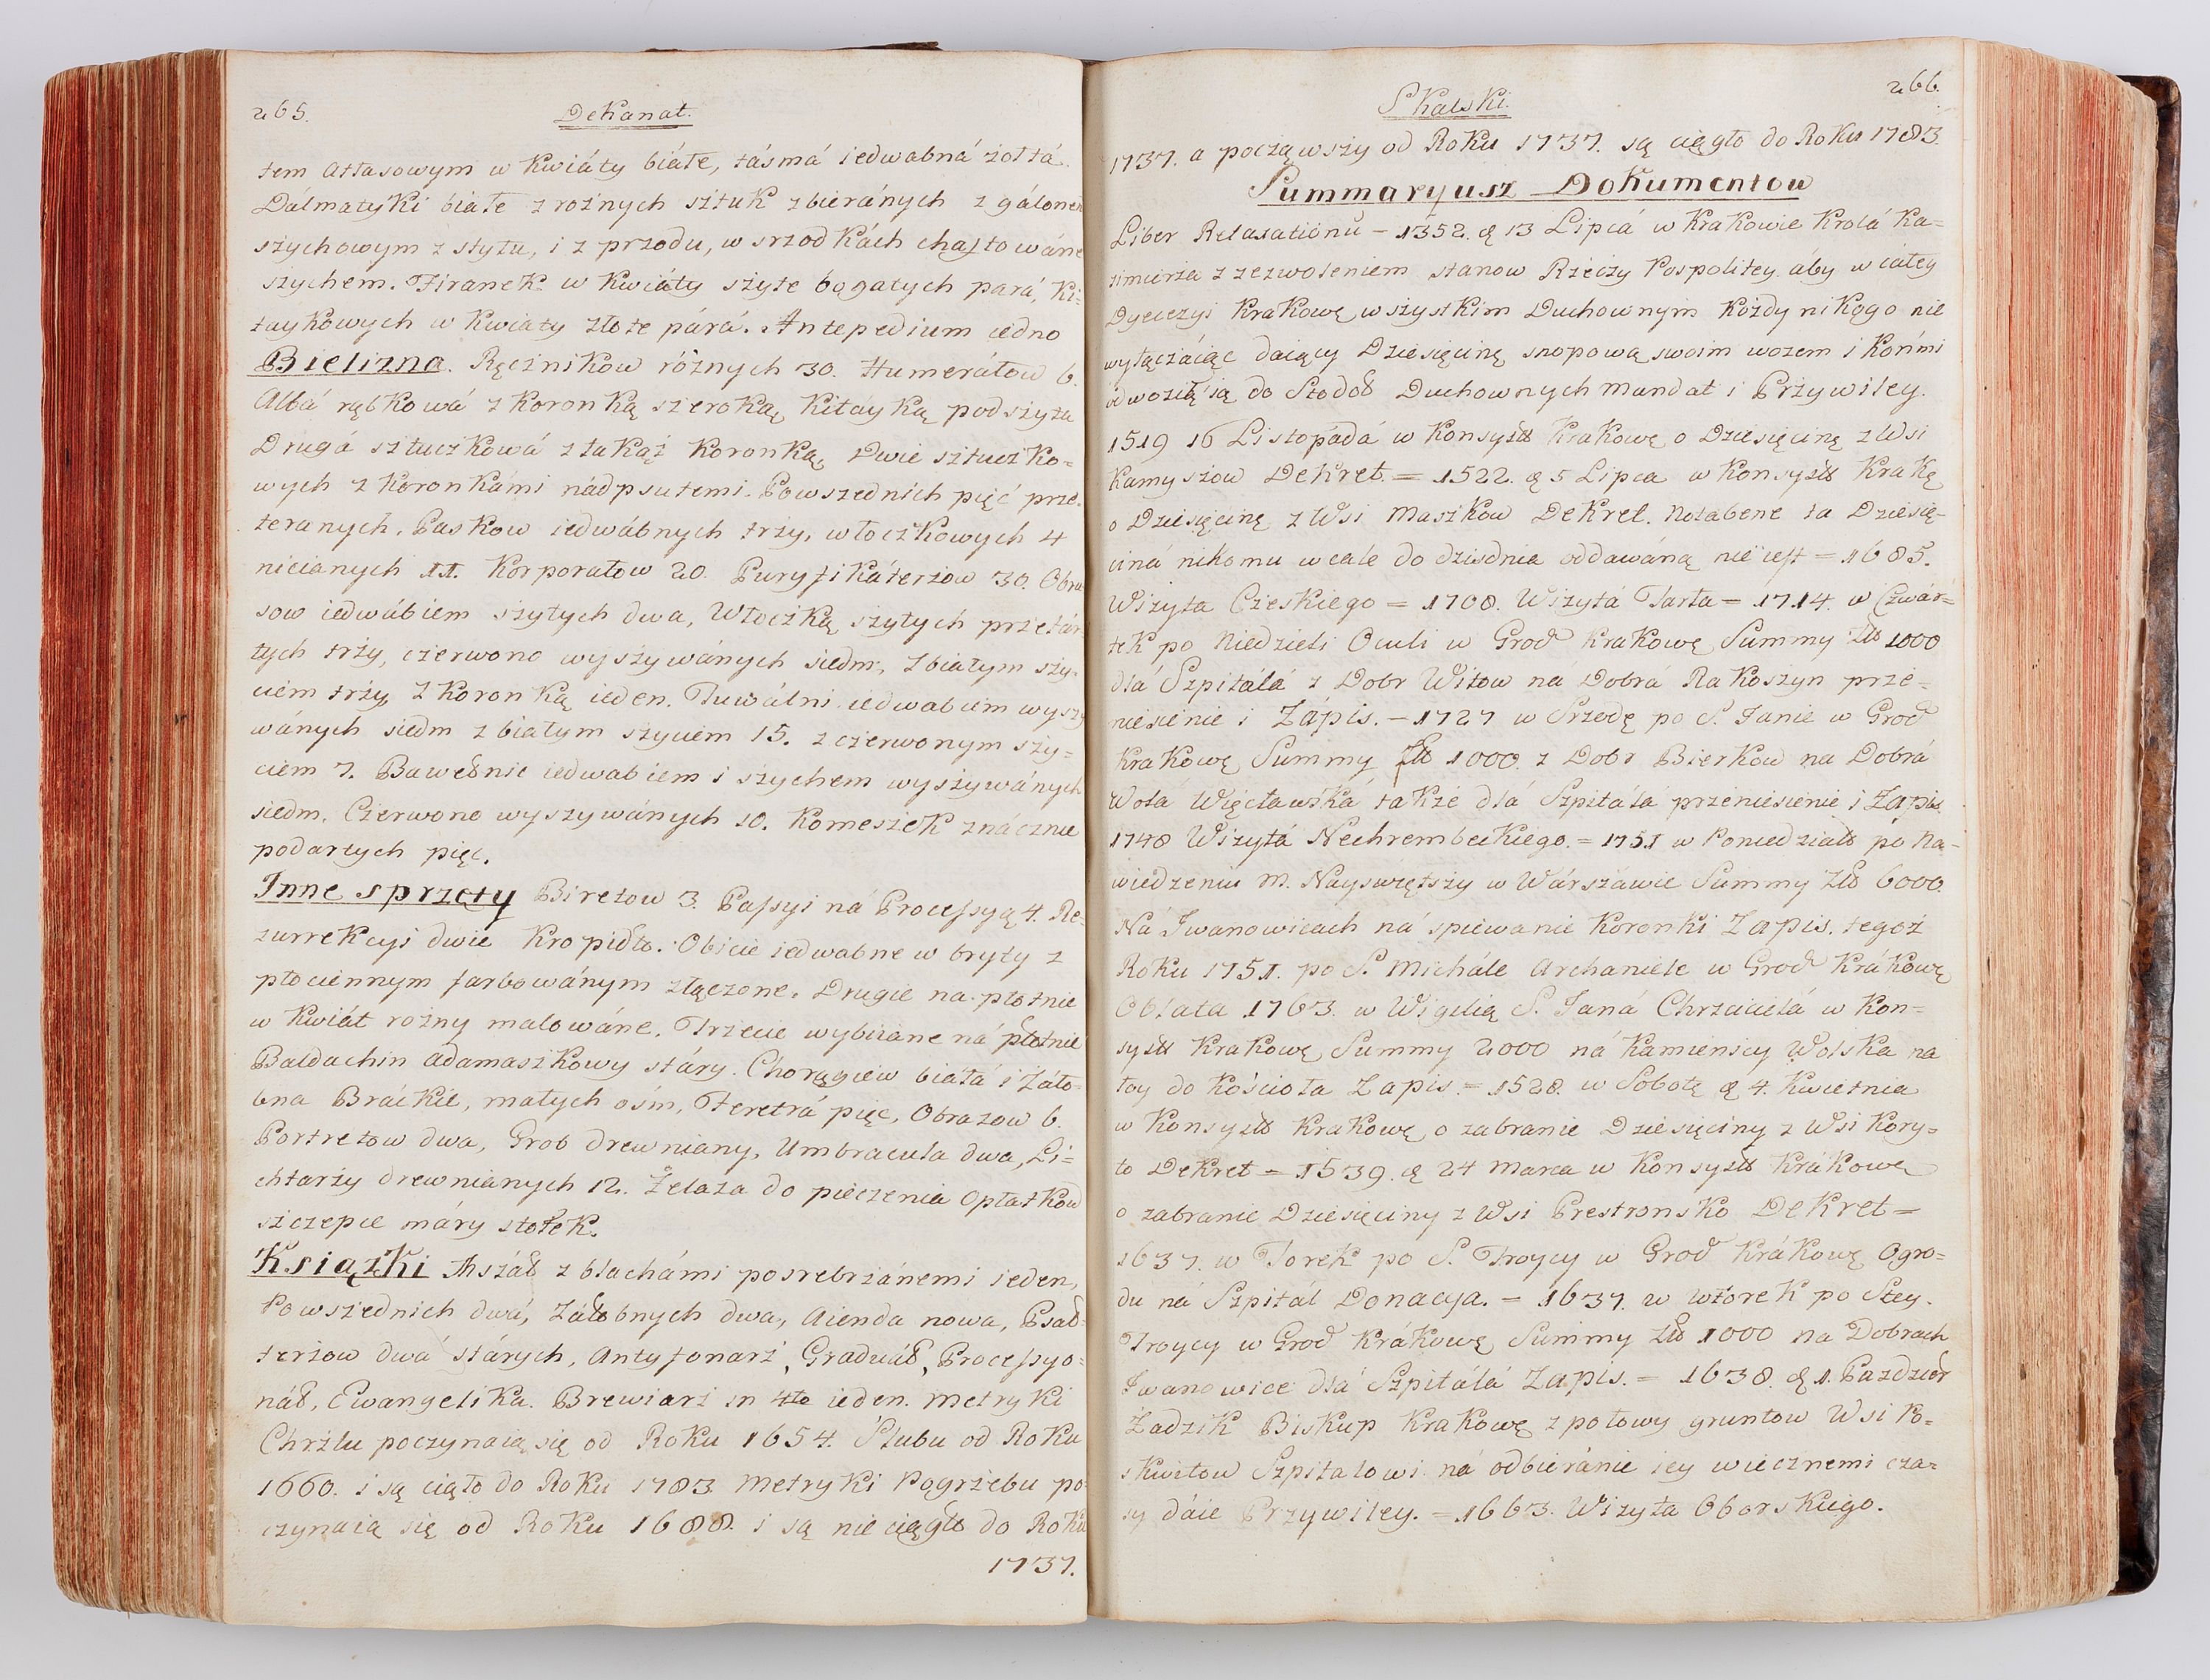 265.
Dekanat.
tem atłasowym w kwiáty białe, tásmá iedwabná żołtá
Dálmatyki białe z rożnych sztuk zbieránych z gálonem
szychowym z tyłu, i z przodu, w srzodkách chaftowáne
szychem. Firanek w kwiáty szyte bogatych pará, ki=
taykowych w kwiaty złote párá. Antepedium iedno
Bielizna. Ręcznikow różnych 30. Humerałow 6.
Albá rąbkowá z koronką szeroką, kitáyką podszyta
Drugá sztuczkowá z takąż koronką, Dwie sztuczko=
wych z koronkámi nádpsutemi. Powszednich pięć prze=
teranych. Paskow iedwábnych trzy, włoczkowych 4
nicianych 11. Korporałow 20. Puryfikáterzow 30. Obru
sow iedwábiem szytych dwa, Włoczką szytych przetár
tych trzy, czerwono wyszywánych siedm, z białym szy=
ciem trzy, z koronką ieden. Tuwálni iedwabiem wyszy
wánych siedm z białym szyciem 15. z czerwonym szy=
ciem 7. Bawełnic iedwabiem i szychem wyszywánych
siedm. Czerwono wyszywánych 10. Komeszek znácznie
podartych pięć.
Inne sprzęty Biretow 3. Passyi ná Processyą 4. Re=
zurrekcyi dwie Kropidło. Obicie iedwabne w bryty z
płociennym farbowánym złączone. Drugie na płotnie
w kwiát rożny malowáne. Trzecie wybiiane ná płotnie
Baldachin adamaszkowy stáry. Chorągiew biáłá i żáło=
bna Bráckie, małych ośm, Feretrá pięć, Obrazow 6.
Portretow dwa, Grob drewniany, Umbracula dwa, Li=
chtarzy drewnianych 12. Żelaza do pieczenia Opłatkow
szczepie máry stołek.
Książki Mszáł z blachámi posrebrzánemi ieden,
Powszednich dwá, Żáłobnych dwa, Aienda nowa, Psał=
terzow dwá stárych, Antyfonarz, Graduáł, Processyo=
náł, Ewangelika. Brewiarz in 4to ieden. Metryki
Chrztu poczynaią się od Roku 1654. Slubu od Roku
1660. i są ciągło do Roku 1783. Metryki Pogrzebu po
czynaią się od Roku 1688. i są nie ciągło do Roku
1737.
266.
Skalski.
1737. a począwszy od Roku 1737. są ciągło do Roku 1783.
Summaryusz Dokumentow
Liber Relaxationũ – 1352. d 13 Lipcá w Krakowie Krolá Ka=
zimierza z zezwoleniem stanow Rzeczy Pospolitey áby w cáłey
Dyecezyi Krakowę wszystkim Duchownym każdy nikogo nie
wyłączáiąc daiący Dziesięcinę snopową swoim wozem i końmi
odwoził ią do Stodoł Duchownych Mandat i Przywiley.
1519 16 Listopádá w Konsystt Krakowę o Dziesięcinę z Wsi
Kamyszow Dekret. = 1522. d 5 Lipca w Konsystt Krakę
o Dziesięcinę z Wsi Maszkow Dekret. Notabene ta Dziesię=
ciná nikomu wcale do dzisdnia oddawáną nie iest = 1685.
Wizyta Czeskiego = 1708. Wizytá Tarła = 1714. w Czwár=
tek po Niedzieli Oculi w Grod Krakowę Summy Złł 1000
dlá Szpitálá z Dobr Witow na Dobrá Rakoszyn prze=
niesienie i Zápis. – 1727 w Srzodę po S. Janie w Grod
Krakowę Summy Złł 1000. z Dobr Bierkow na Dobrá
Wolá Więcławská także dlá Szpitálá przeniesienie i Zapis
1748 Wizytá Nechrembeckiego. = 1751 w Poniedziałł po Na=
wiedzeniu M. Nayswiętszy w Wárszáwie Summy Złł 6000.
Ná Iwanowicach ná spiewanie koronki Zapis. tegoż
Roku 1751. po S. Michále Archaniele w Grod Krákowę
Oblata 1763. w Wigilią S. Janá Chrzcicielá w Kon=
systt Krakowę Summy 2000 ná Kamienicy Wolska na
toy do Kościoła Zapis. = 1528. w Sobotę d 4. Kwietnia
w Konsystt Krakowę o zabranie Dziesięciny z Wsi Kory=
to Dekret = 1539. d 24 Marca w Konsystt Krákowę
o zabranie Dziesięciny z Wsi Prestronsko Dekret =
1637. w Torek po S. Troycy w Grod Krákowę Ogro=
du ná Szpitál Donacya. = 1637. w wtorek po Stey
Troycy w Grod Krákowę Summy Złł 1000 na Dobrach
Iwanowice dlá Szpitálá Zapis. = 1638. d 1. Pazdzier
Zadzik Biskup Krakowę z połowy gruntow Wsi Po=
skwitow Szpitalowi ná odbieránie iey wiecznemi cza=
sy dáie Przywiley. = 1663. Wizyta Oborskiego.